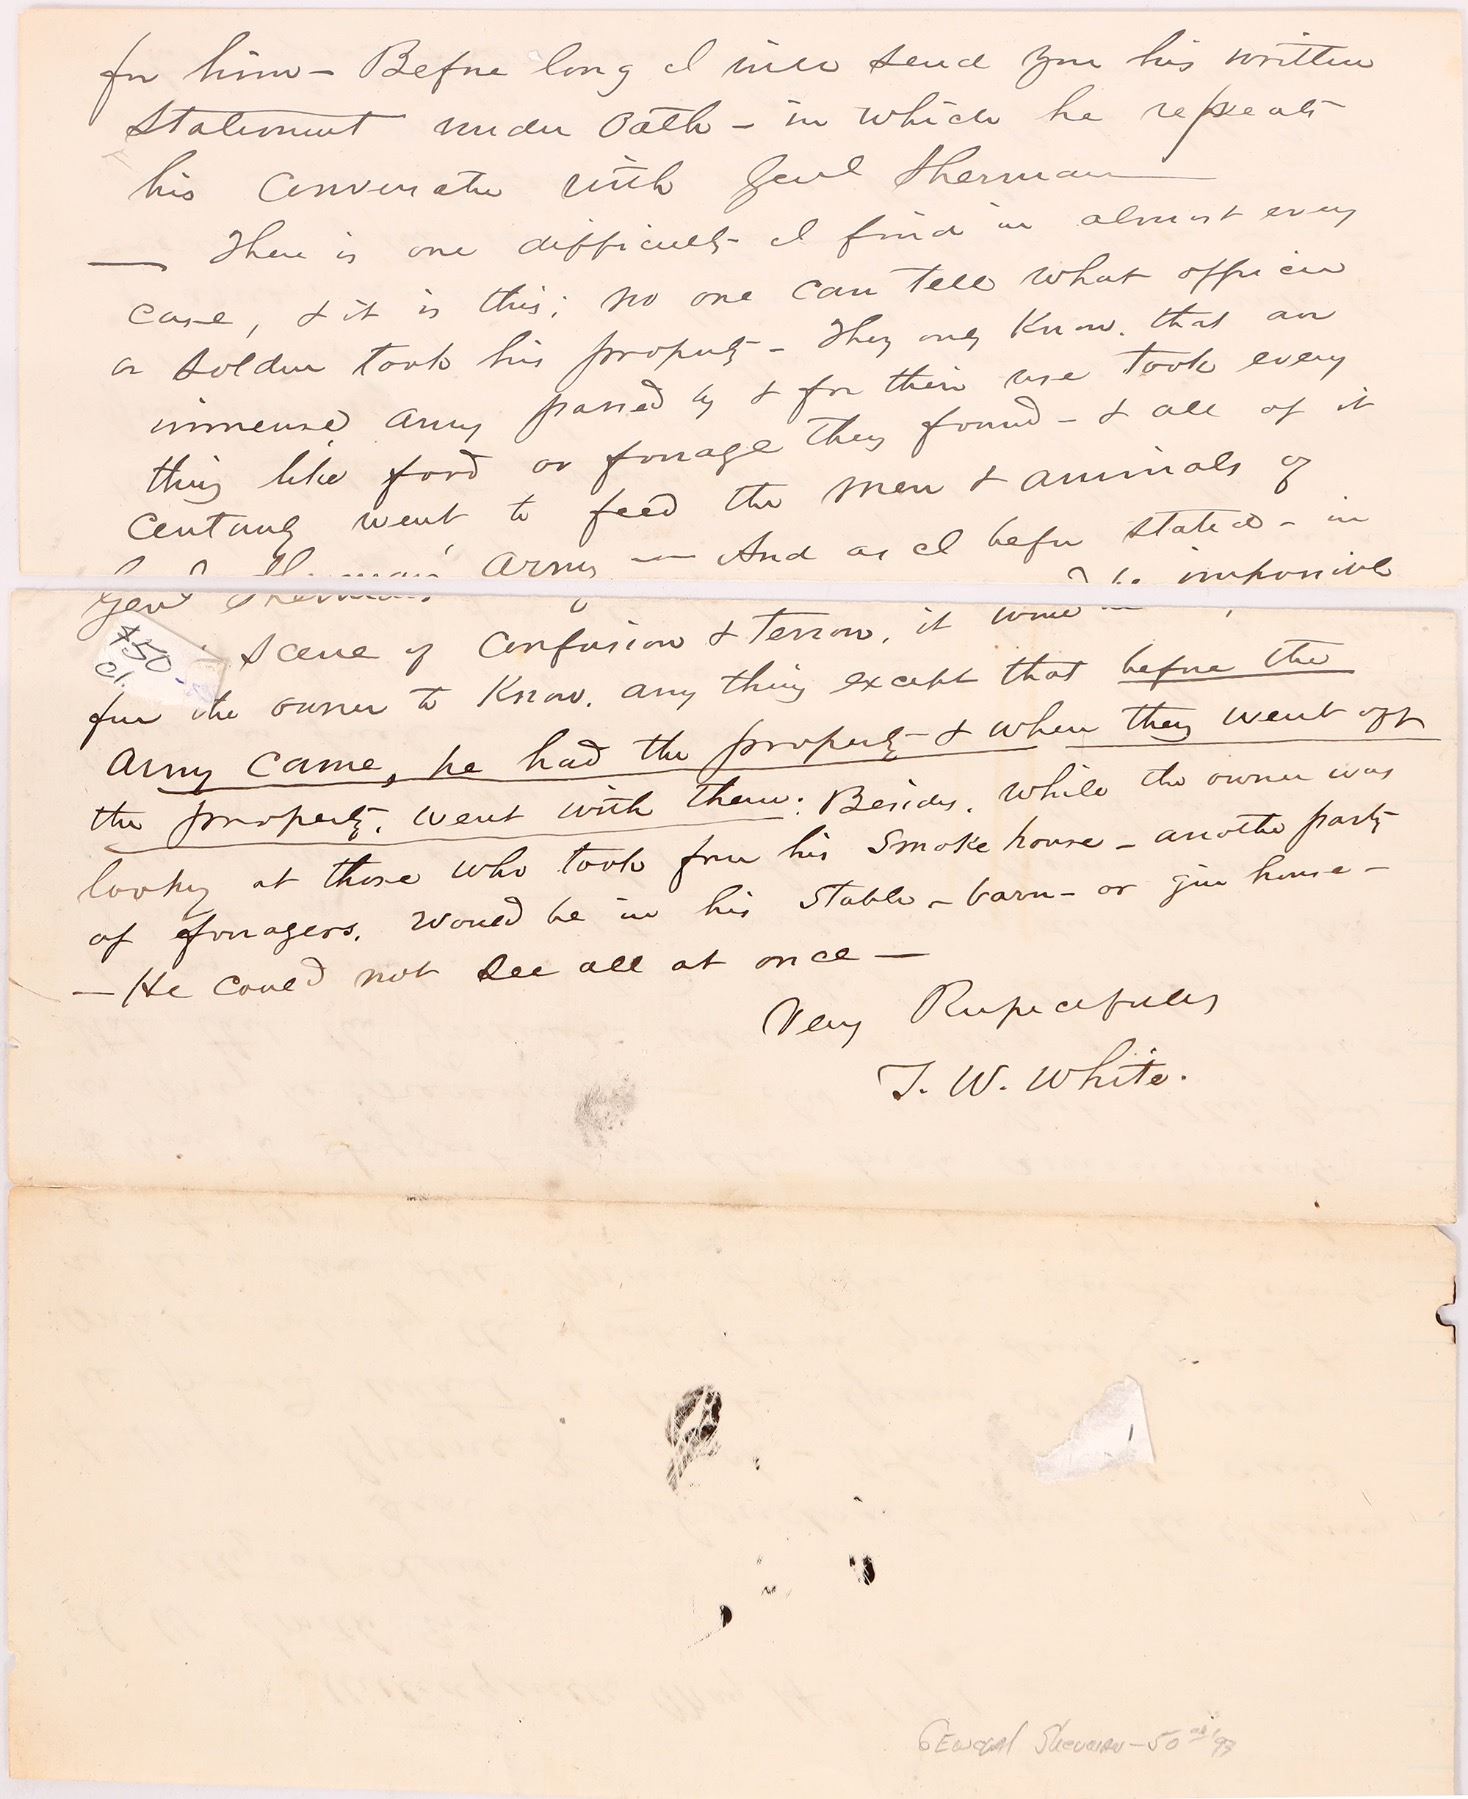 for him – Before long I will send you his written
Statement under Oath – in which he repeats
his Conversation with Genl Sherman
— There is one difficulty I find in almost every
case, & it is this; no one can tell what officer
or soldier took his property – They only Know. that an
immense Army passed by & for their use took every
thing like food or forrage they found – & all of it
certainly went, to feed the men & animals of
Genl Sherman's Army — And as I before stated – in
scene of Confusion & terror. it would be impossible
for the owner to Know. any thing except that before the
Army Came, he had the property & when they went off
the property. went with them. Besides. while the owner was
looking at those who took from his Smoke house – another party
of forragers. would be in his Stable – barn – or gin house –
— He could not see all at once —
Very Respectfully
T. W. White.
$50 –
cl.
GENERAL Sherman – 50 93